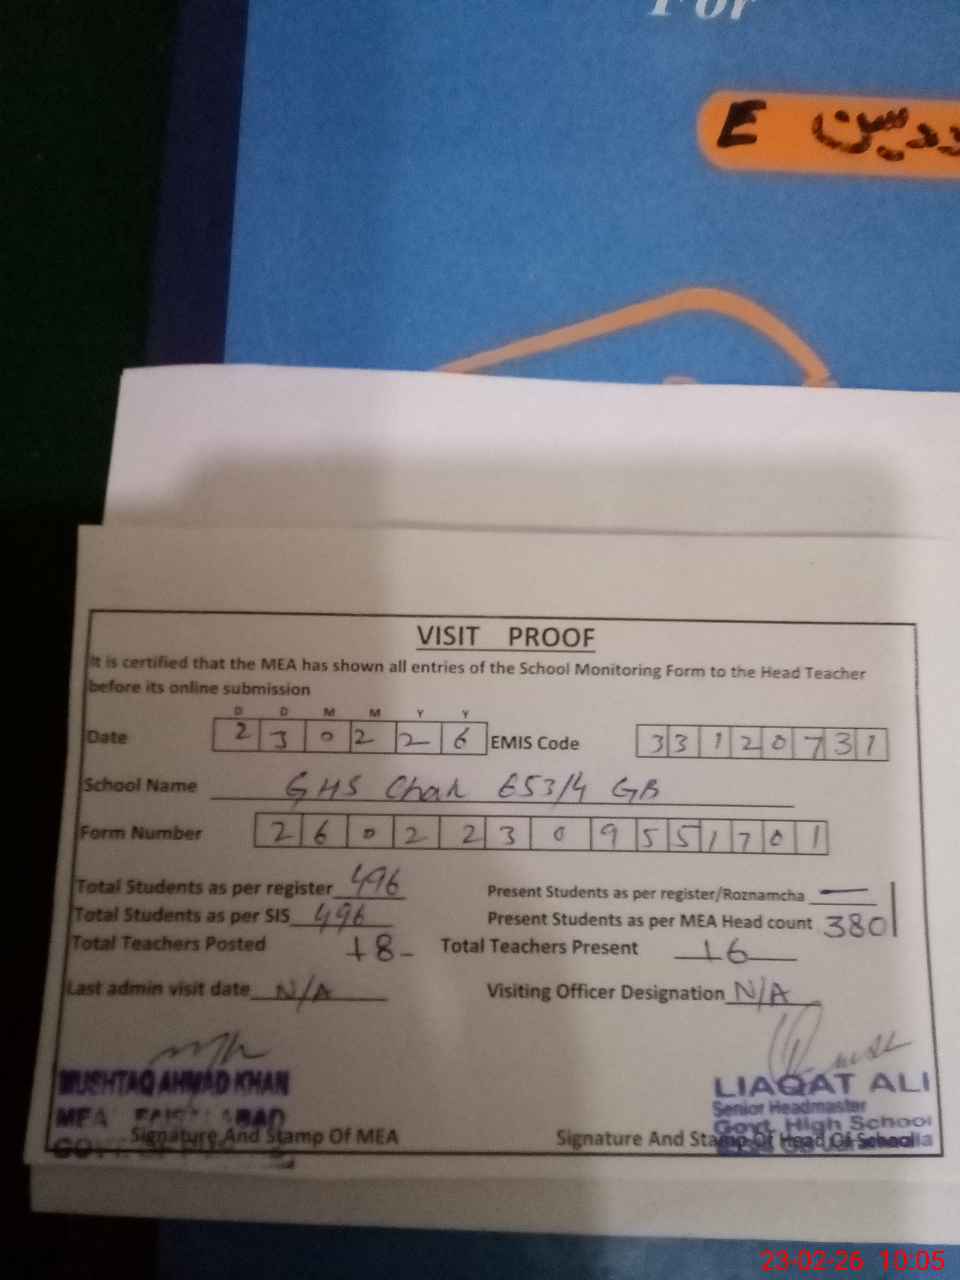 For
E دریس
VISIT PROOF
It is certified that the MEA has shown all entries of the School Monitoring Form to the Head Teacher
before its online submission
D D M M Y Y
Date 2 3 0 2 2 6 EMIS Code 3 3 1 2 0 7 3 1
School Name GHS Chak 653/4 GB
Form Number 2 6 0 2 2 3 0 9 5 5 1 7 0 1
Total Students as per register 496 Present Students as per register/Roznamcha —
Total Students as per SIS 496 Present Students as per MEA Head count 380
Total Teachers Posted 18 Total Teachers Present 16
Last admin visit date N/A Visiting Officer Designation N/A
MUSHTAQ AHMAD KHAN LIAQAT ALI
MEA FAISALABAD Senior Headmaster
Govt. High School
Signature And Stamp Of MEA Signature And Stamp Of Head Of School
23-02-26 10:05